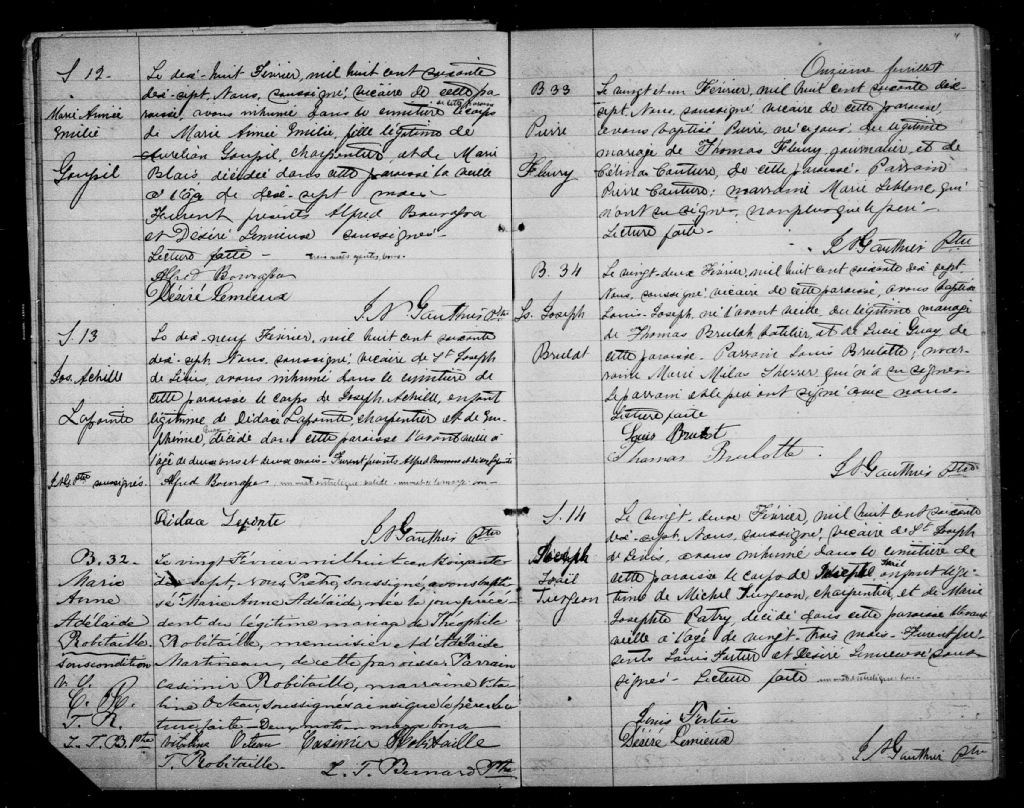 S 12
Marie Aimée
Emilie
Goupil
Le dix-huit Février, mil huit cent soixante
dix-sept, Nous, soussigné, vicaire de cette pa-
roisse, avons inhumé dans le cimetière de cette paroisse le corps
de Marie Aimée Emilie, fille légitime de
Aurélien Goupil, charpentier et de Marie
Blais décédée dans cette paroisse la veille
à l'âge de dix-sept mois-
Furent présents Alfred Bourassa
et Désiré Lemieux soussignés-
Lecture faite -
Alfred Bourassa
Désiré Lemieux
J N Gauthier Ptre
S. 13
Jos. Achille
Lapointe
Le dix-neuf Février, mil huit cent soixante
dix-sept. Nous, soussigné, vicaire de St Joseph
de Lévis, avons inhumé dans le cimetière de
cette paroisse le corps de Joseph Achille, enfant
légitime de Didace Lapointe, charpentier et de Eu-
phémie décédé dans cette paroisse l'avant veille à
l'âge de deux ans et deux mois- Furent présents Alfred Bourassa et Didace Lapointe
Ptre soussignés.
Alfred Bourassa
Didace Lapointe
J N Gauthier Ptre
B. 32
Marie
Anne
Adélaide
Robitaille
sous condition
V. O.
C. R.
T. R.
L. T. B. Ptre
Le vingt Février mil huit cent soixante
dix sept, nous Prêtre soussigné, avons bapti-
sé Marie Anne Adélaïde, née le jour précé-
dent du légitime mariage de Théophile
Robitaille, menuisier et d'Adélaïde
Martineau, de cette paroisse. Parrain
Casimir Robitaille, marraine Vita-
line Octeau, soussignés ainsi que le père. Lec-
ture faite - Deux mots en marge bons
Vitaline Octeau Casimir Robitaille
T. Robitaille.
L. T. Bernard Ptre
Onzième feuillet
B 33
Pierre
Fleury
Le vingt et un Février, mil huit cent soixante dix-
sept, Nous, soussigné vicaire de cette paroisse,
avons baptisé Pierre, né ce jour, du légitime
mariage de Thomas Fleury journalier, et de
Célina Couture, de cette paroisse. Parrain
Pierre Couture; marraine Marie Leblanc qui
n'ont su signer, non plus que le père-
Lecture faite-
J N Gauthier Ptre
B. 34
Ls. Joseph
Brulot
Le vingt-deux Février, mil huit cent soixante dix sept
Nous, soussigné, vicaire de cette paroisse, avons baptisé
Louis-Joseph, né l'avant veille, du légitime mariage
de Thomas Brulot batelier, et de Lucie Guay de
cette paroisse. Parrain Louis Brulotte; mar-
raine Marie qui n'a su signer
Le parrain et le père ont signé avec nous-
Lecture faite
Louis Brulot
Thomas Brulotte.
J N Gauthier Ptre
S. 14
Joseph
Israïl
Turgeon
Le vingt-deux Février, mil huit cent soixante
dix-sept. Nous, soussigné, vicaire de St Joseph
de Lévis, avons inhumé dans le cimetière de
cette paroisse le corps de Joseph Israïl enfant légi-
time de Michel Turgeon, charpentier, et de Marie
Josephte Patry, décédé dans cette paroisse l'avant
veille à l'âge de vingt-trois mois- Furent pré-
sents Louis Fortier et Désiré Lemieux sous-
signés- Lecture faite
Louis Fortier
Désiré Lemieux
J N Gauthier Ptre